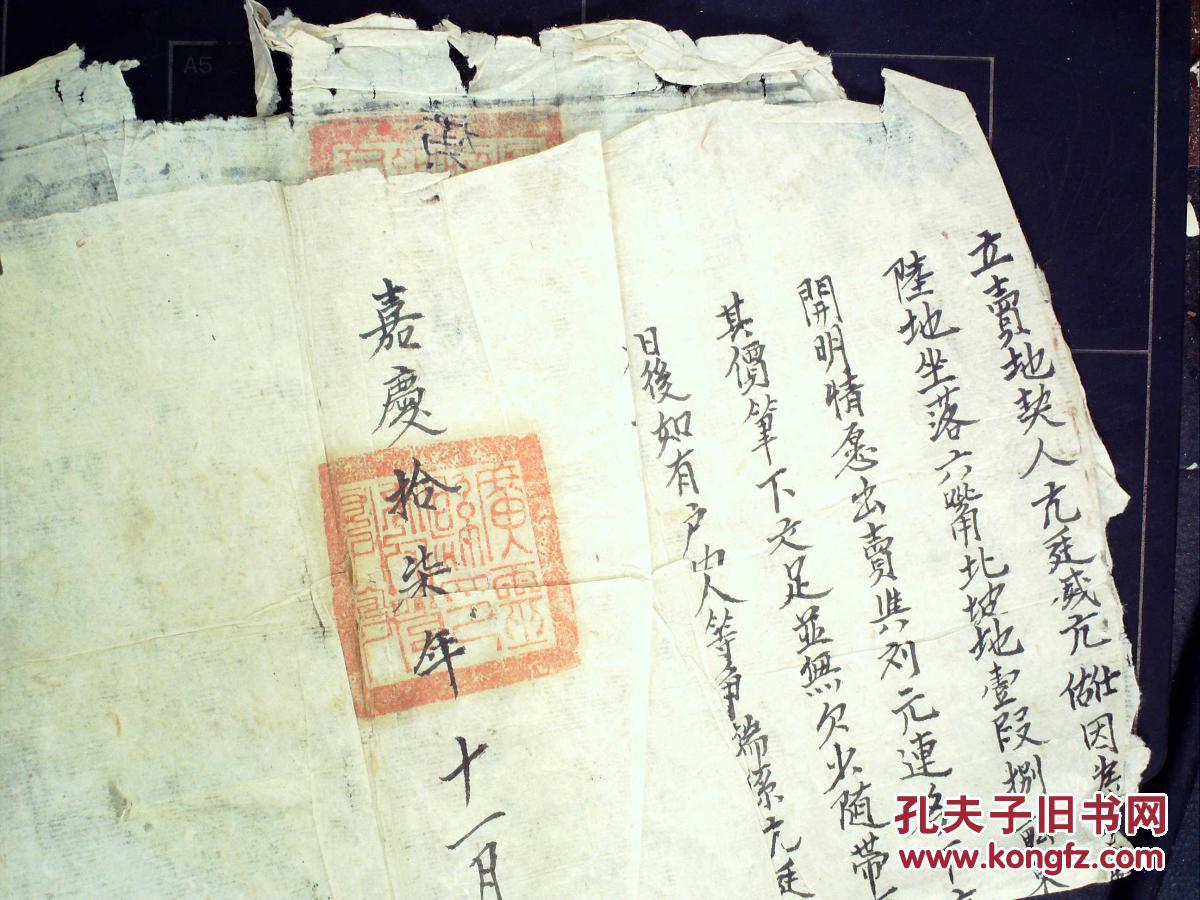 立賣地契人亢廷威亢仕因
陸地坐落六嘴北坡地壹段捌畝
開明情愿出賣與刘元連名下
其價筆下交足並無欠少随帶
日後如有戶山人等爭端系亢廷
嘉慶拾柒年十一月
A5
孔夫子旧书网
www.kongfz.com